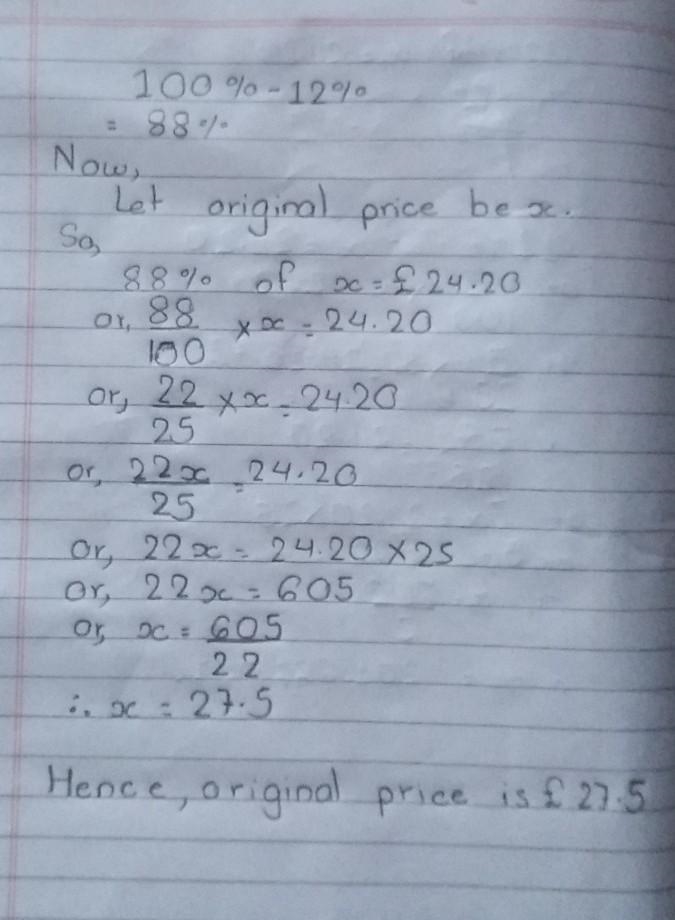 100% - 12%
= 88%
Now,
Let original price be x.
So,
88% of x = £24.20
or, 88/100 × x = 24.20
or, 22/25 × x = 24.20
or, 22x/25 = 24.20
or, 22x = 24.20 × 25
or, 22x = 605
or, x = 605/22
∴ x = 27.5
Hence, original price is £27.5